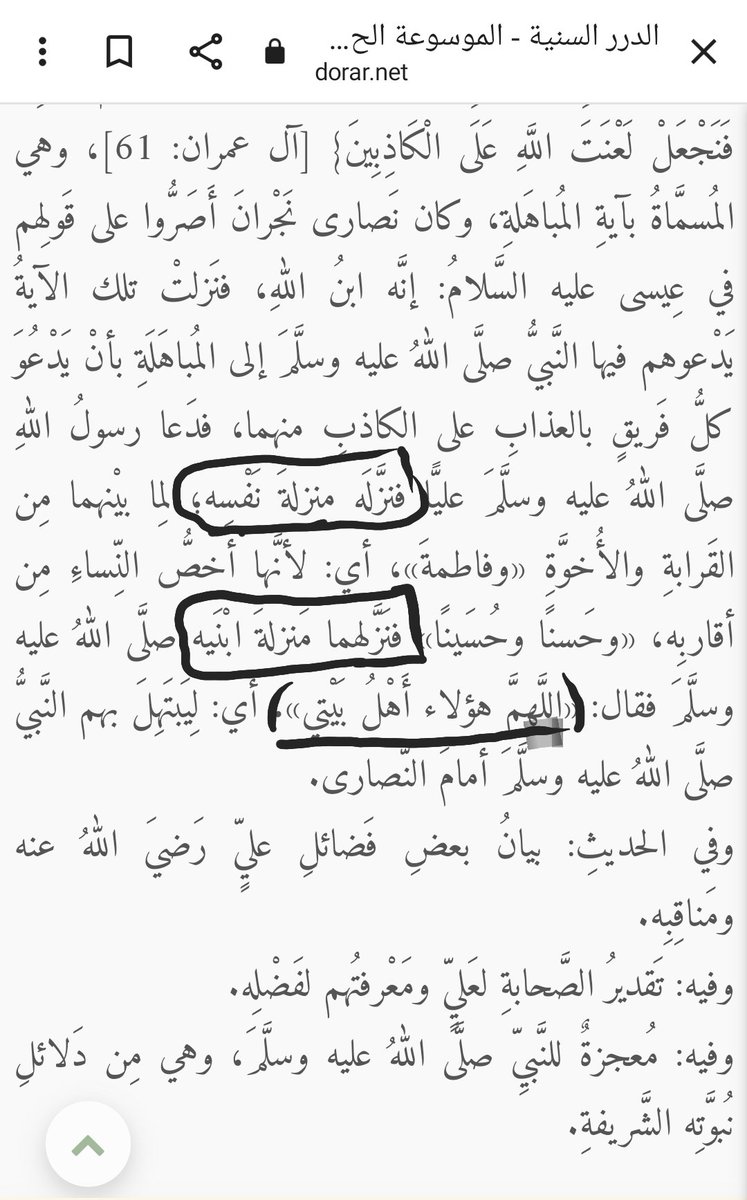 الدرر السنية - الموسوعة الح...
dorar.net
فَنَجْعَلْ لَعْنَتَ اللَّهِ عَلَى الْكَاذِبِينَ} [آل عمران: 61]، وهي
المُسمَّاةُ بآيةِ المُباهَلةِ، وكان نَصارى نَجْرانَ أَصَرُّوا على قَولِهم
في عِيسى عليه السَّلامُ: إنَّه ابنُ اللهِ، فنَزلتْ تلك الآيةُ
يَدْعوهم فيها النَّبيُّ صلَّى اللهُ عليه وسلَّمَ إلى المُباهَلَةِ بأنْ يَدْعُوَ
كلُّ فَريقٍ بالعذابِ على الكاذبِ منهما، فدَعا رسولُ اللهِ
صلَّى اللهُ عليه وسلَّمَ عليًّا فنزَّلَه منزلةَ نَفْسِه؛ لِما بيْنهما مِن
القَرابةِ والأُخوَّةِ «وفاطمةَ»، أي: لأنَّها أخصُّ النِّساءِ مِن
أقاربِه، «وحَسنًا وحُسَينًا» فنَزَّلهما مَنزلةَ ابْنَيه صلَّى اللهُ عليه
وسلَّمَ فقال: «اللَّهمَّ هؤلاء أَهْلُ بَيْتي»، أي: لِيَبتَهِلَ بهم النَّبيُّ
صلَّى اللهُ عليه وسلَّمَ أمامَ النَّصارى.
وفي الحديثِ: بيانُ بعضِ فَضائلِ عليٍّ رَضيَ اللهُ عنه
ومَناقِبِه.
وفيه: تَقديرُ الصَّحابةِ لعَليٍّ ومَعْرفتُهم لفَضْلِه.
وفيه: مُعجزةٌ للنَّبيِّ صلَّى اللهُ عليه وسلَّمَ، وهي مِن دَلائلِ
نُبوَّتِه الشَّريفةِ.